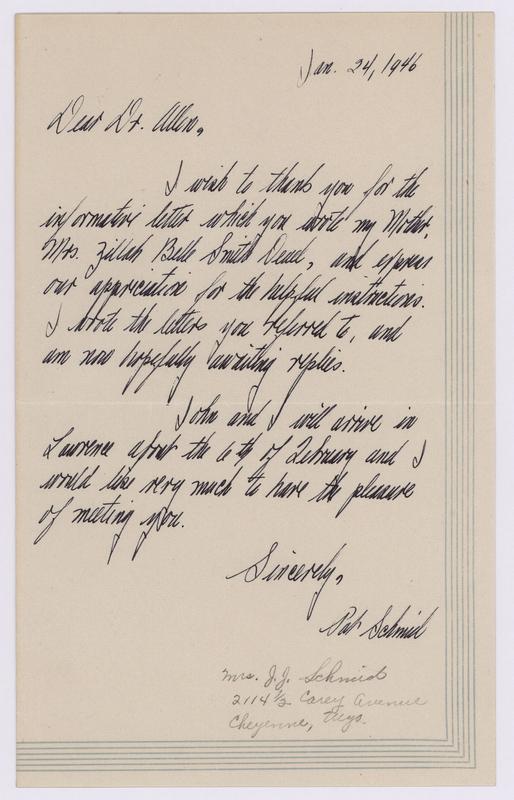 Jan. 24, 1946
Dear Dr. Allen,
I wish to thank you for the
informative letter which you wrote my Mother,
Mrs. Zillah Belle Smith Deuel, and express
our appriciation for the helpful instructions.
I wrote the letters you referred to, and
am now hopefully awaiting replies.
John and I will arrive in
Lawrence about the 6th of February and I
would like very much to have the pleasure
of meeting you.
Sincerely,
Pat Schmid
Mrs. J. J. Schmid
2114 1/2 Carey Avenue
Cheyenne, Wyo.